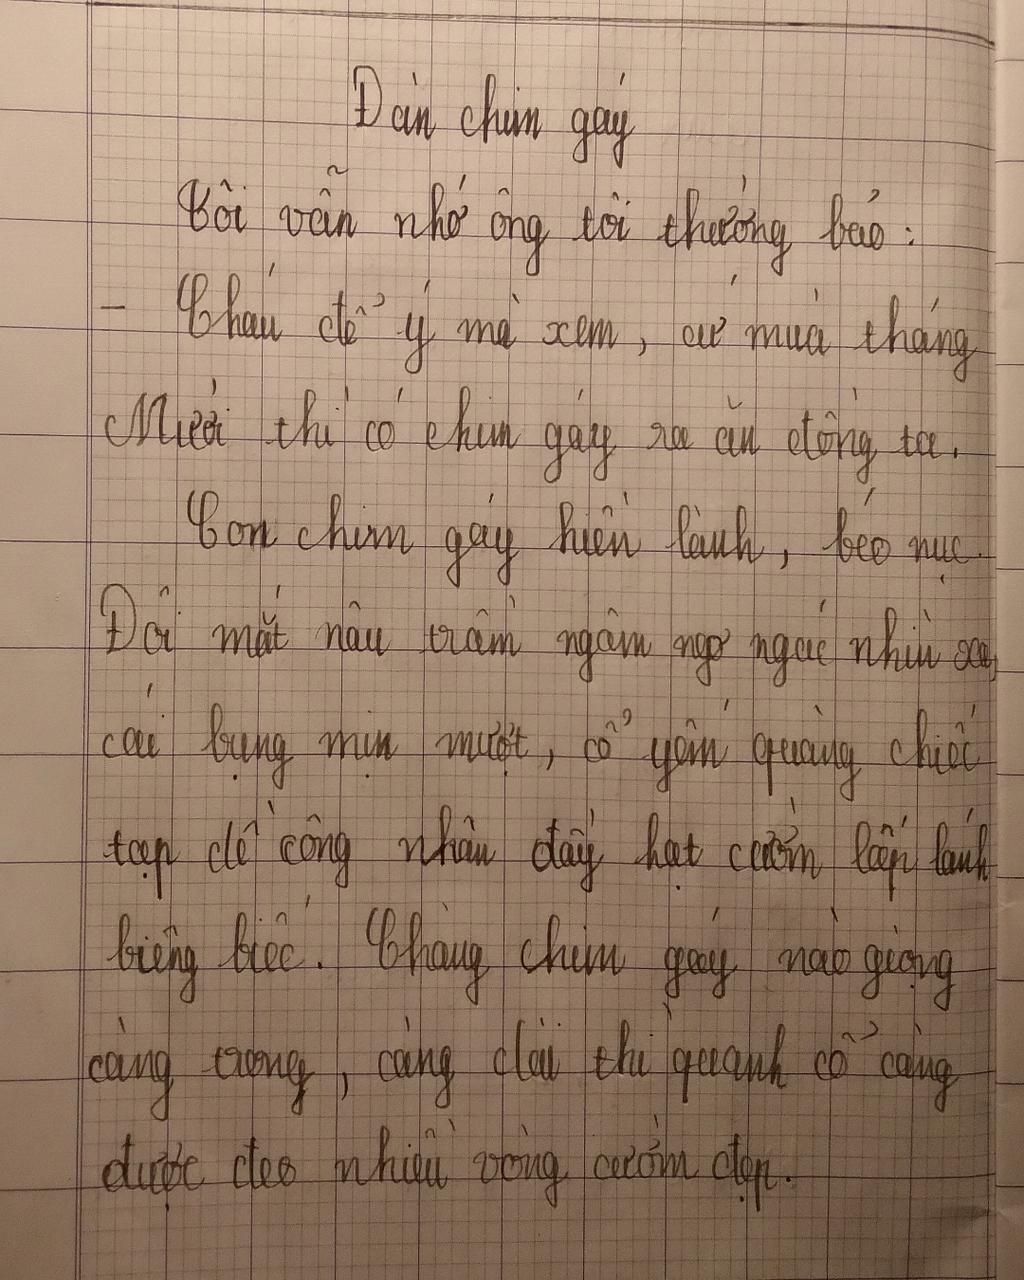 Đàn chim gáy
Tôi vẫn nhớ ông tôi thường bảo:
- Cháu để ý mà xem, cứ mùa tháng
Mười thì có chim gáy ra ăn đồng ta.
Con chim gáy hiền lành, béo nục.
Đôi mắt nâu trầm ngâm ngơ ngác nhìn xa,
cái bụng mịn mượt, cổ yếm quàng chiếc
tạp dề công nhân đầy hạt cườm lấp lánh
biêng biếc. Chàng chim gáy nào giọng
càng trong, càng dài thì quanh cổ càng
được đeo nhiều vòng cườm đẹp.